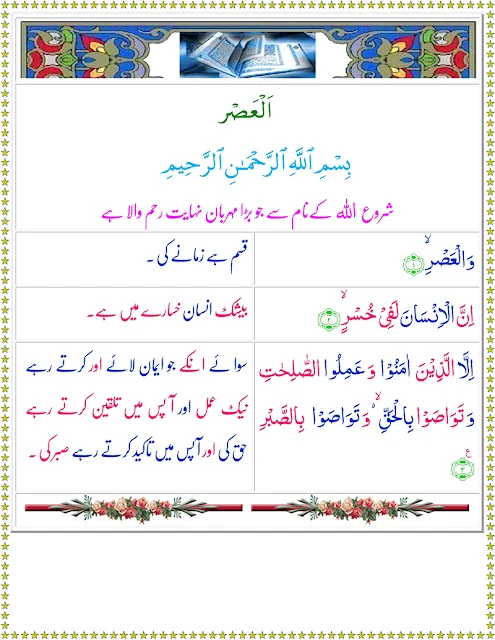 اَلْعَصْر
بِسْمِ ٱللَّهِ ٱلرَّحْمَـٰنِ ٱلرَّحِيمِ
شروع اللہ کے نام سے جو بڑا مہربان نہایت رحم والا ہے
وَالْعَصْرِۙ‏ ﴿۱﴾
قسم ہے زمانے کی ۔
اِنَّ الْاِنْسَانَ لَفِىْ خُسْرٍۙ‏ ﴿۲﴾
بیشک انسان خسارے میں ہے۔
اِلَّا الَّذِيْنَ اٰمَنُوْا وَ عَمِلُوا الصّٰلِحٰتِ
وَ تَوَاصَوْا بِالْحَقِّ ۙ وَتَوَاصَوْا بِالصَّبْرِ
﴿۳﴾ ع
سوائے انکے جو ایمان لائے اور کرتے رہے
نیک عمل اور آپس میں تلقین کرتے رہے
حق کی اور آپس میں تاکید کرتے رہے صبر کی ۔